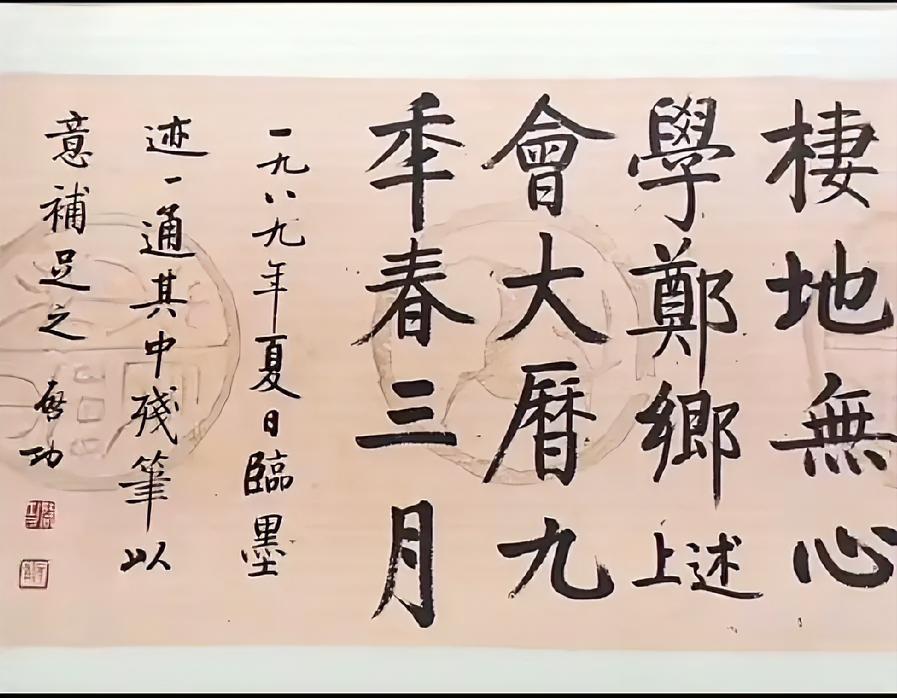 棲地無心
學鄭鄉述上
會大曆九
秊春三月
一九八九年夏日臨墨
迹一通其中残筆以
意補足之 啓功